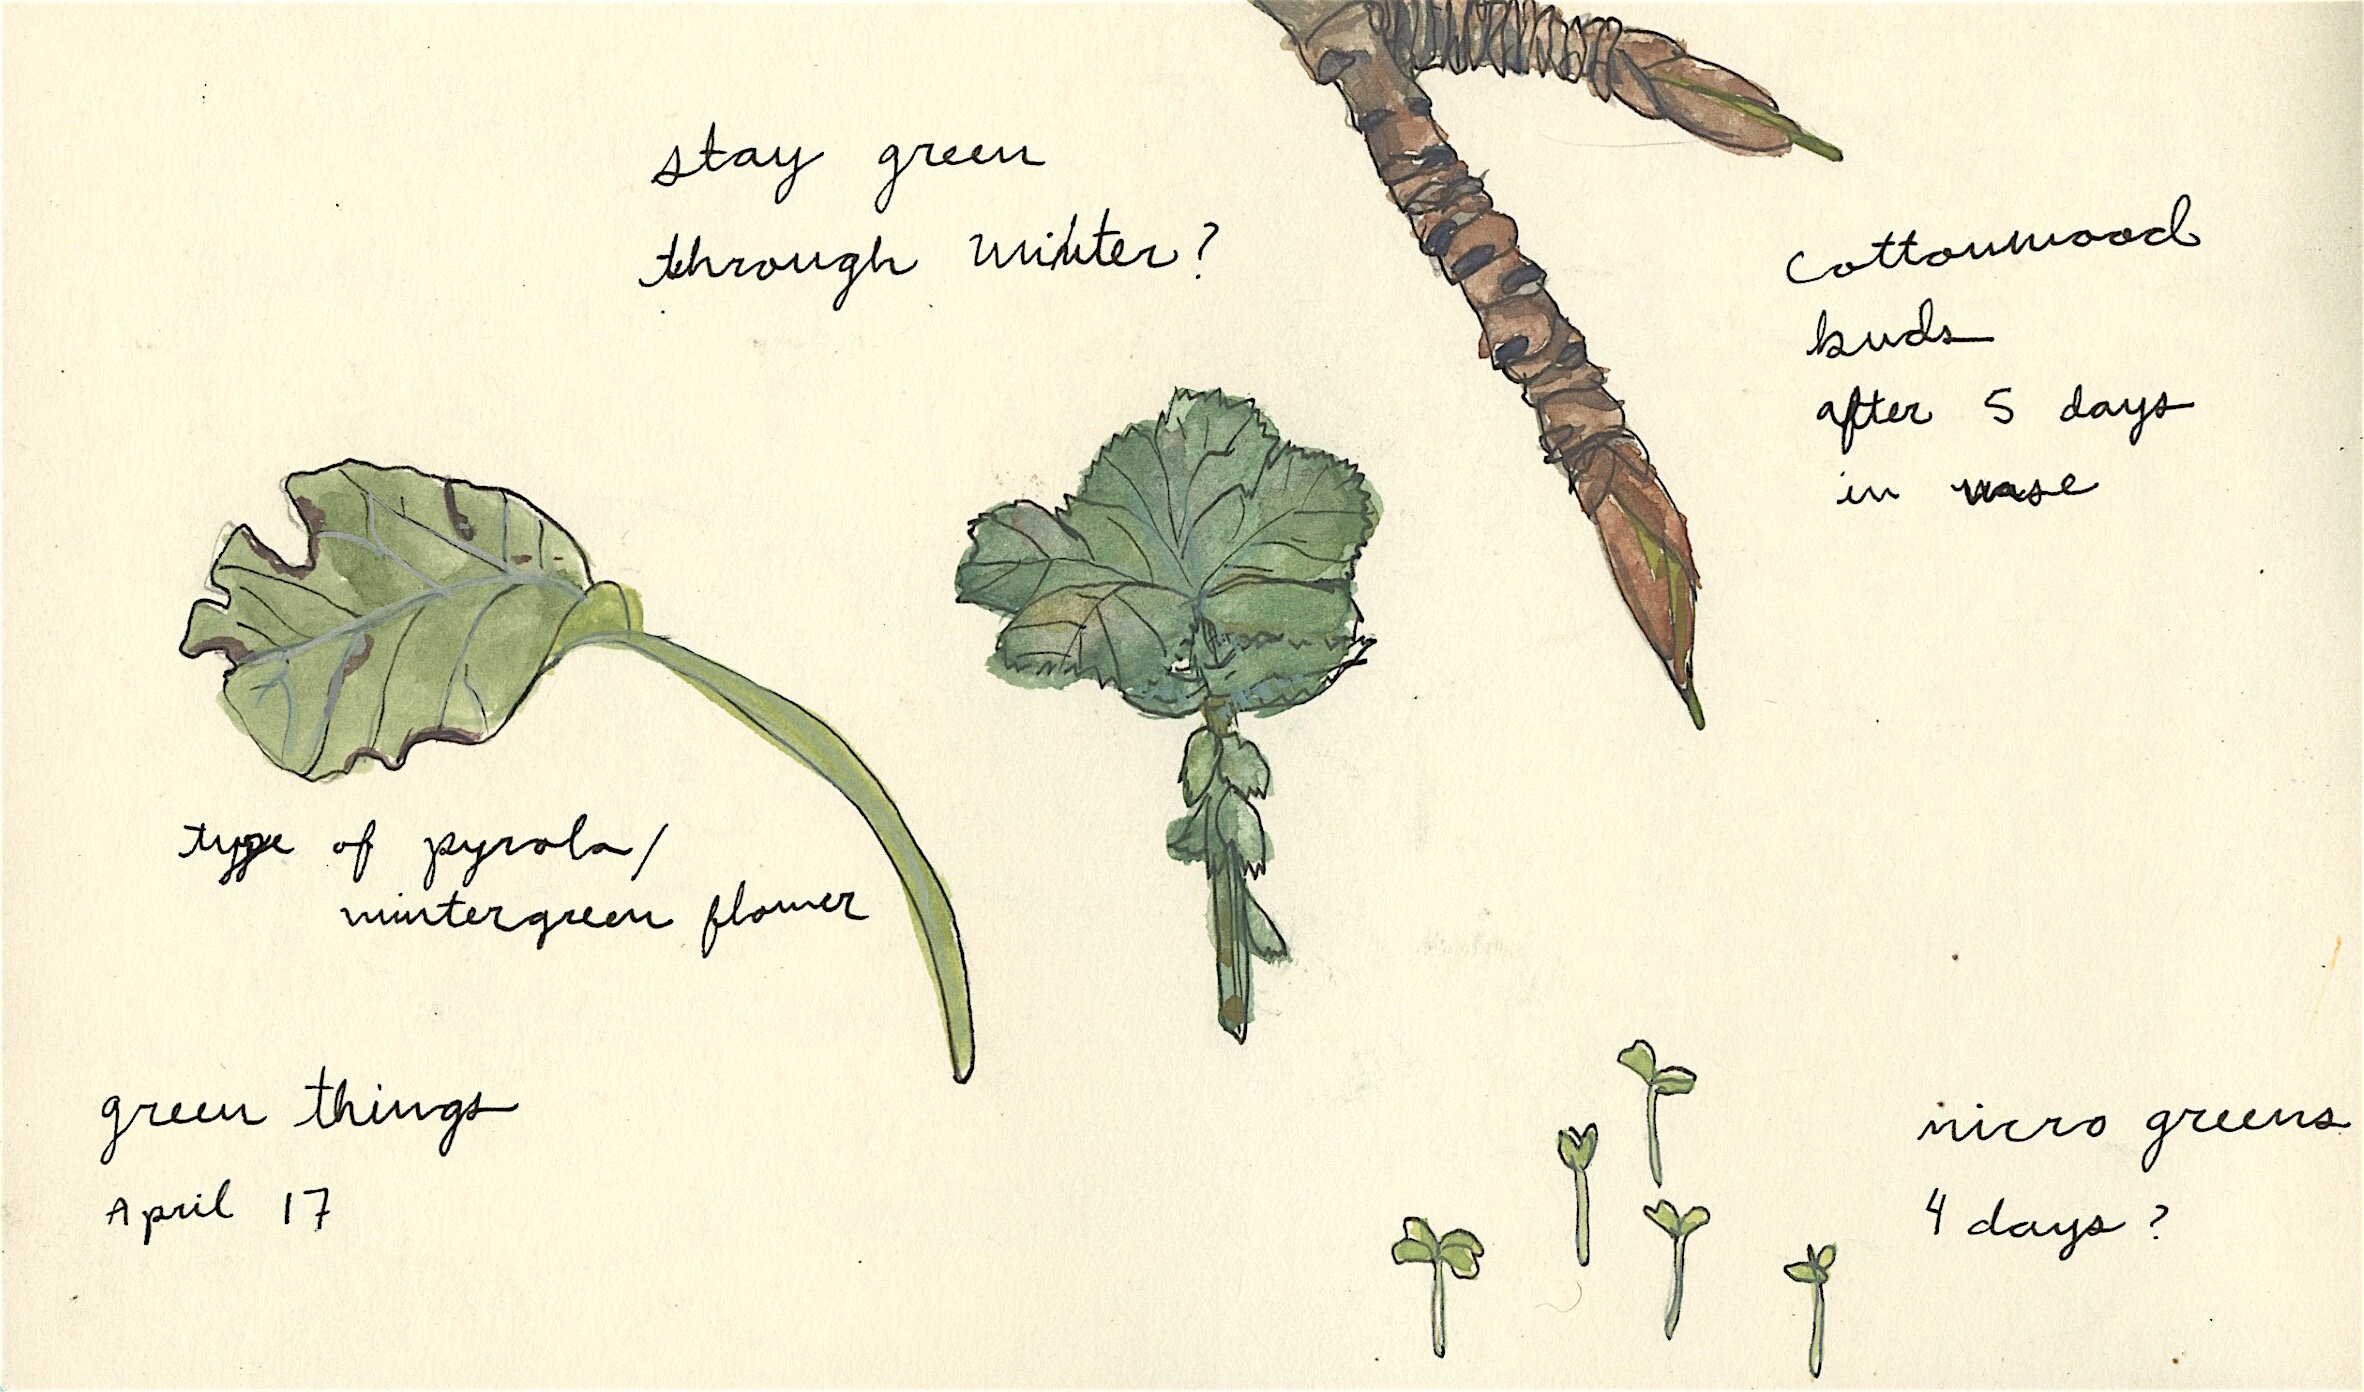 stay green
through winter?
cottonwood
buds
after 5 days
in vase
type of pyrola/
wintergreen flower
green things
April 17
micro greens
4 days?